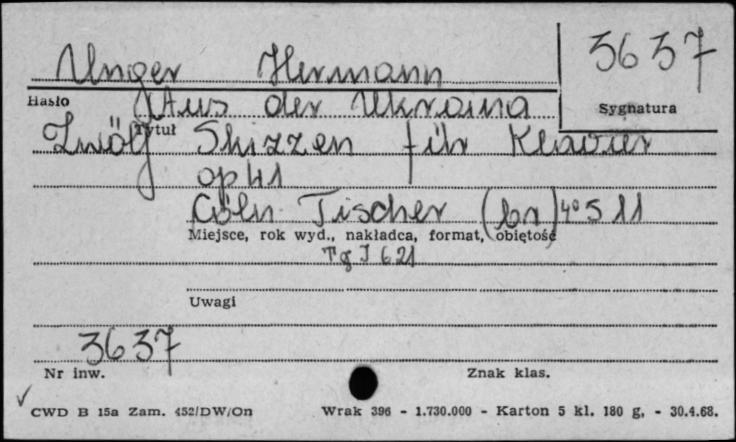 Unger Hermann
3637
Hasło
Aus der Ukraina
Sygnatura
Tytuł
Zwölf Skizzen für Klavier
op 41
Cöln Tischer (br) 4° S 11
Miejsce, rok wyd., nakładca, format, objętość
T g J 621
Uwagi
3637
Nr inw.
Znak klas.
CWD B 15a Zam. 452/DW/On
Wrak 396 - 1.730.000 - Karton 5 kl. 180 g. - 30.4.68.